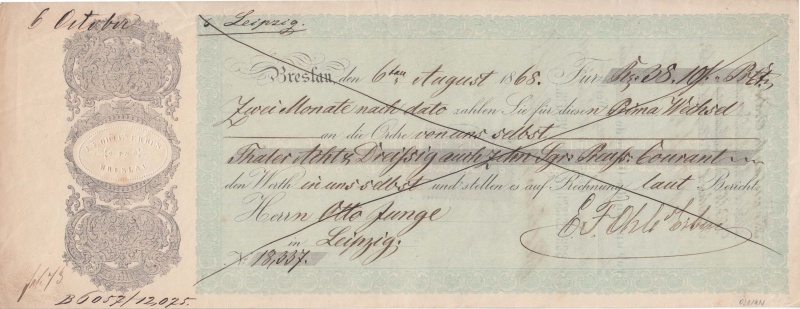 6 October
Leipzig.
Breslau, den 6ten August 1868. Für 38. 10
Zwei Monate nach dato zahlen Sie für diesen Prima Wechsel
an die Ordre von uns selbst
Thaler Acht & Dreissig auch zehn Sgr. Preuss. Courant
den Werth in uns selbst und stellen es auf Rechnung laut Bericht
Herrn Otto Junge
in Leipzig.
E. F. Ohle's Erben
BRESLAU
18,337.
B6057/12,075.